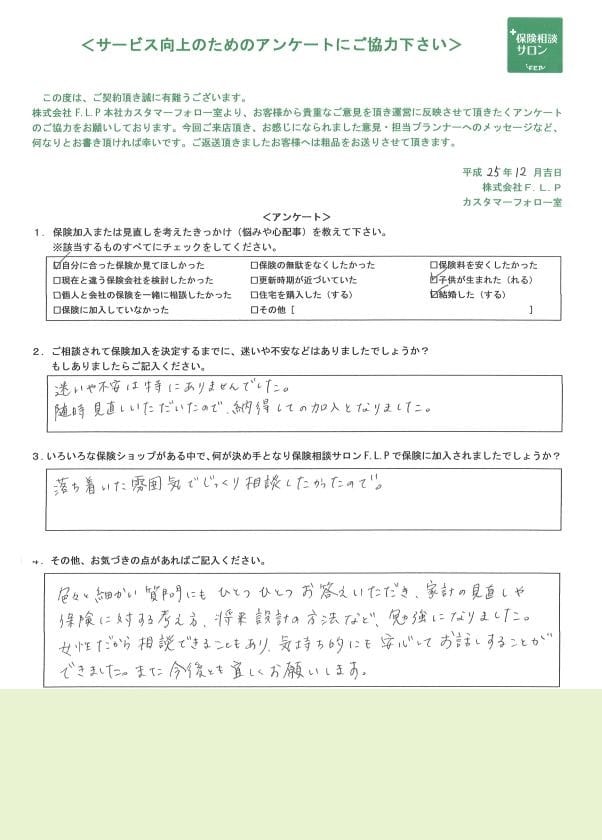 ＜サービス向上のためのアンケートにご協力下さい＞
保険相談
サロン
F.L.P
この度は、ご契約頂き誠に有難うございます。
株式会社F.L.P本社カスタマーフォロー室より、お客様から貴重なご意見を頂き運営に反映させて頂きたくアンケート
のご協力をお願いしております。今回ご来店頂き、お感じになられました意見・担当プランナーへのメッセージなど、
何なりとお書き頂ければ幸いです。ご返送頂きましたお客様へは粗品をお送りさせて頂きます。
平成 25年12月吉日
株式会社F.L.P
カスタマーフォロー室
＜アンケート＞
1．保険加入または見直しを考えたきっかけ（悩みや心配事）を教えて下さい。
※該当するものすべてにチェックをしてください。
☑自分に合った保険か見てほしかった □保険の無駄をなくしたかった □保険料を安くしたかった
□現在と違う保険会社を検討したかった □更新時期が近づいていた ☑子供が生まれた（れる）
□個人と会社の保険を一緒に相談したかった □住宅を購入した（する） ☑結婚した（する）
□保険に加入していなかった □その他［ ］
2．ご相談されて保険加入を決定するまでに、迷いや不安などはありましたでしょうか？
もしありましたらご記入ください。
迷いや不安は特にありませんでした。
随時見直しいただいたので、納得しての加入となりました。
3．いろいろな保険ショップがある中で、何が決め手となり保険相談サロンF.L.Pで保険に加入されましたでしょうか？
落ち着いた雰囲気でじっくり相談したかったので。
4．その他、お気づきの点があればご記入ください。
色々と細かい質問にもひとつひとつお答えいただき、家計の見直しや
保険に対する考え方、将来設計の方法など、勉強になりました。
女性だから相談できることもあり、気持ち的にも安心してお話しすることが
できました。また今後とも宜しくお願いします。